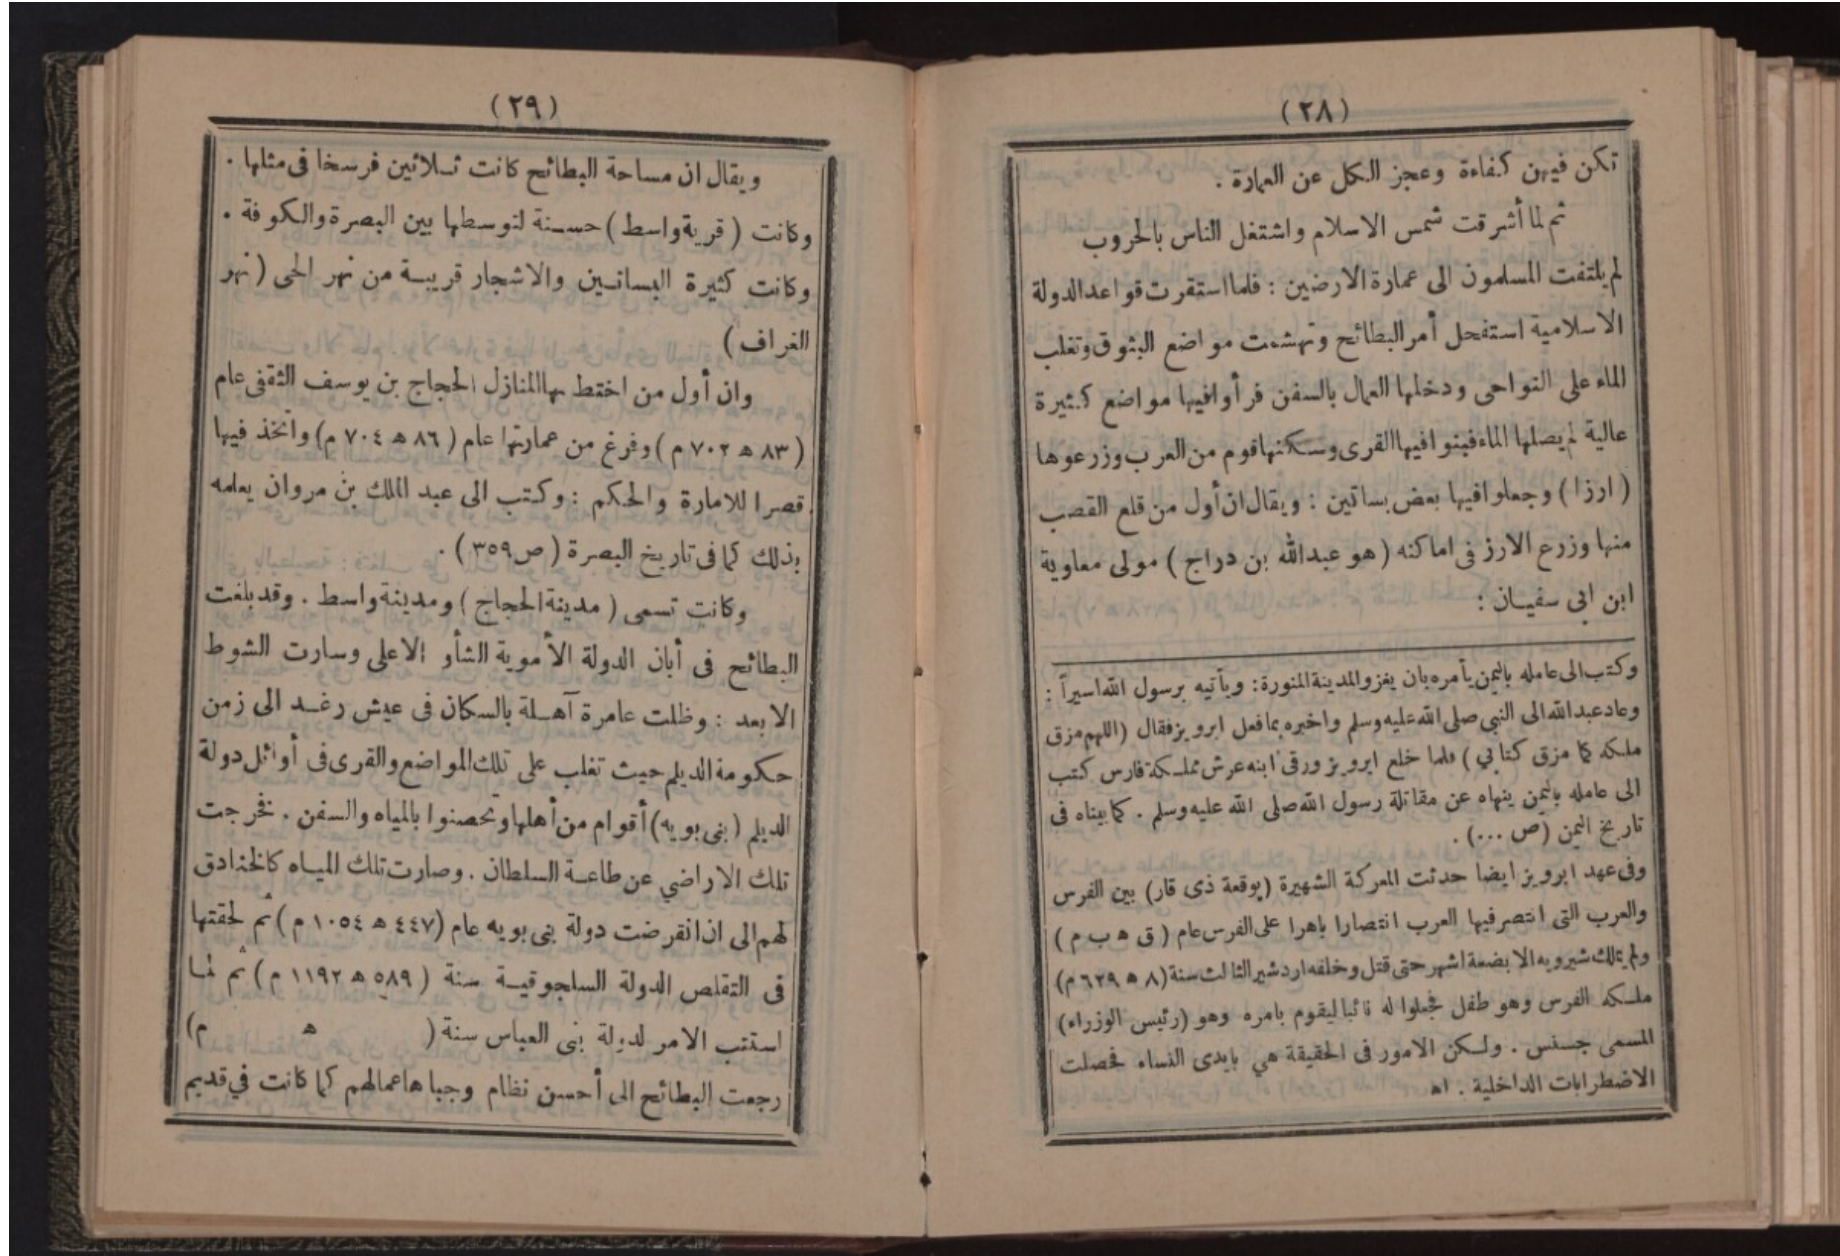 (٢٨)
تكن فيهن كفاءة وعجز الكل عن العمارة .
ثم لما أشرقت شمس الاسلام واشتغل الناس بالحروب
لم يلتفت المسلمون الى عمارة الارضين : فلما استقرت قواعد الدولة
الاسلامية استفحل أمر البطائح وتهشمت مواضع البثوق وتغلب
الماء على النواحى ودخلها العمال بالسفن فرأوا فيها مواضع كثيرة
عالية لم يصلها الماء فبنوا فيها القرى وسكنها قوم من العرب وزرعوها
( ارزا ) وجعلوا فيها بعض بساتين : ويقال ان أول من قلع القصب
منها وزرع الارز فى اماكنه ( هو عبدالله بن دراج ) مولى معاوية
ابن ابى سفيان :
وكتب الى عامله باليمن يأمره بان يغزو المدينة المنورة : ويأتيه برسول الله اسيراً :
وعاد عبد الله الى النبى صلى الله عليه وسلم واخبره بما فعل ابرويز فقال (اللهم مزق
ملكه كما مزق كتابي ) فلما خلع ابرويز ورقى ابنه عرش مملكة فارس كتب
الى عامله باليمن ينهاه عن مقاتلة رسول الله صلى الله عليه وسلم . كما بيناه فى
تاريخ اليمن (ص ...) .
وفى عهد ابرويز ايضا حدثت المعركة الشهيرة (بوقعة ذى قار) بين الفرس
والعرب التى انتصر فيها العرب انتصارا باهرا على الفرس عام ( ق ه ب م )
ولم يتملك شيرويه الا بضعة اشهر حتى قتل وخلفه اردشير الثالث سنة (٨ ه ٦٢٩ م)
ملكه الفرس وهو طفل فجعلوا له نائبا ليقوم بامره وهو (رئيس الوزراء)
المسمى جسنس . ولكن الامور فى الحقيقة هي بايدى النساء فحصلت
الاضطرابات الداخلية . اه
(٢٩)
ويقال ان مساحة البطائح كانت ثلاثين فرسخا فى مثلها .
وكانت ( قرية واسط ) حسنة لتوسطها بين البصرة والكوفة .
وكانت كثيرة البساتين والاشجار قريبة من نهر الحى ( نهر
الغراف )
وان أول من اختط بها المنازل الحجاج بن يوسف الثقفى عام
( ٨٣ ه ٧٠٢ م ) وفرغ من عمارتها عام ( ٨٦ ه ٧٠٤ م ) واتخذ فيها
قصرا للامارة والحكم : وكتب الى عبد الملك بن مروان يعلمه
بذلك كما فى تاريخ البصرة ( ص ٣٥٩ ) .
وكانت تسمى ( مدينة الحجاج ) ومدينة واسط . وقد بلغت
البطائح فى أبان الدولة الأموية الشأو الاعلى وسارت الشوط
الابعد : وظلت عامرة آهلة بالسكان فى عيش رغد الى زمن
حكومة الديلم حيث تغلب على تلك المواضع والقرى فى أوائل دولة
الديلم ( بنى بويه ) أقوام من أهلها وتحصنوا بالمياه والسفن . فخرجت
تلك الاراضي عن طاعة السلطان . وصارت تلك المياه كالخنادق
لهم الى ان انقرضت دولة بنى بويه عام (٤٤٧ ه ١٠٥٤ م ) ثم لحقتها
فى التقلص الدولة السلجوقية سنة ( ٥٨٩ ه ١١٩٢ م ) ثم لما
استتب الامر لدولة بنى العباس سنة ( ه م )
رجعت البطائح الى أحسن نظام وجباها عمالهم كما كانت في قديم